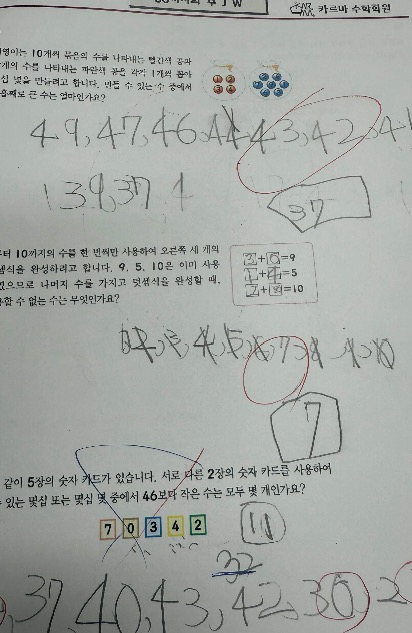 카르마 수학학원
10개씩 묶음의 수를 나타내는 빨간색 공과
수를 나타내는 파란색 공을 각각 1개씩 뽑아
몇을 만들려고 합니다. 만들 수 있는 수 중에서
큰 수는 얼마인가요?
49, 47, 46, 43, 42, 41
139,37 1
37
10까지의 수를 한 번씩만 사용하여 오른쪽 세 개의
완성하려고 합니다. 9, 5, 10은 이미 사용
나머지 수를 가지고 덧셈식을 완성할 때,
수 없는 수는 무엇인가요?
3+6=9
1+4=5
2+8=10
7
같이 5장의 숫자 카드가 있습니다. 서로 다른 2장의 숫자 카드를 사용하여
있는 몇십 또는 몇십 몇 중에서 46보다 작은 수는 모두 몇 개인가요?
7 0 3 4 2
11
32
37, 40, 43, 42, 30, 2